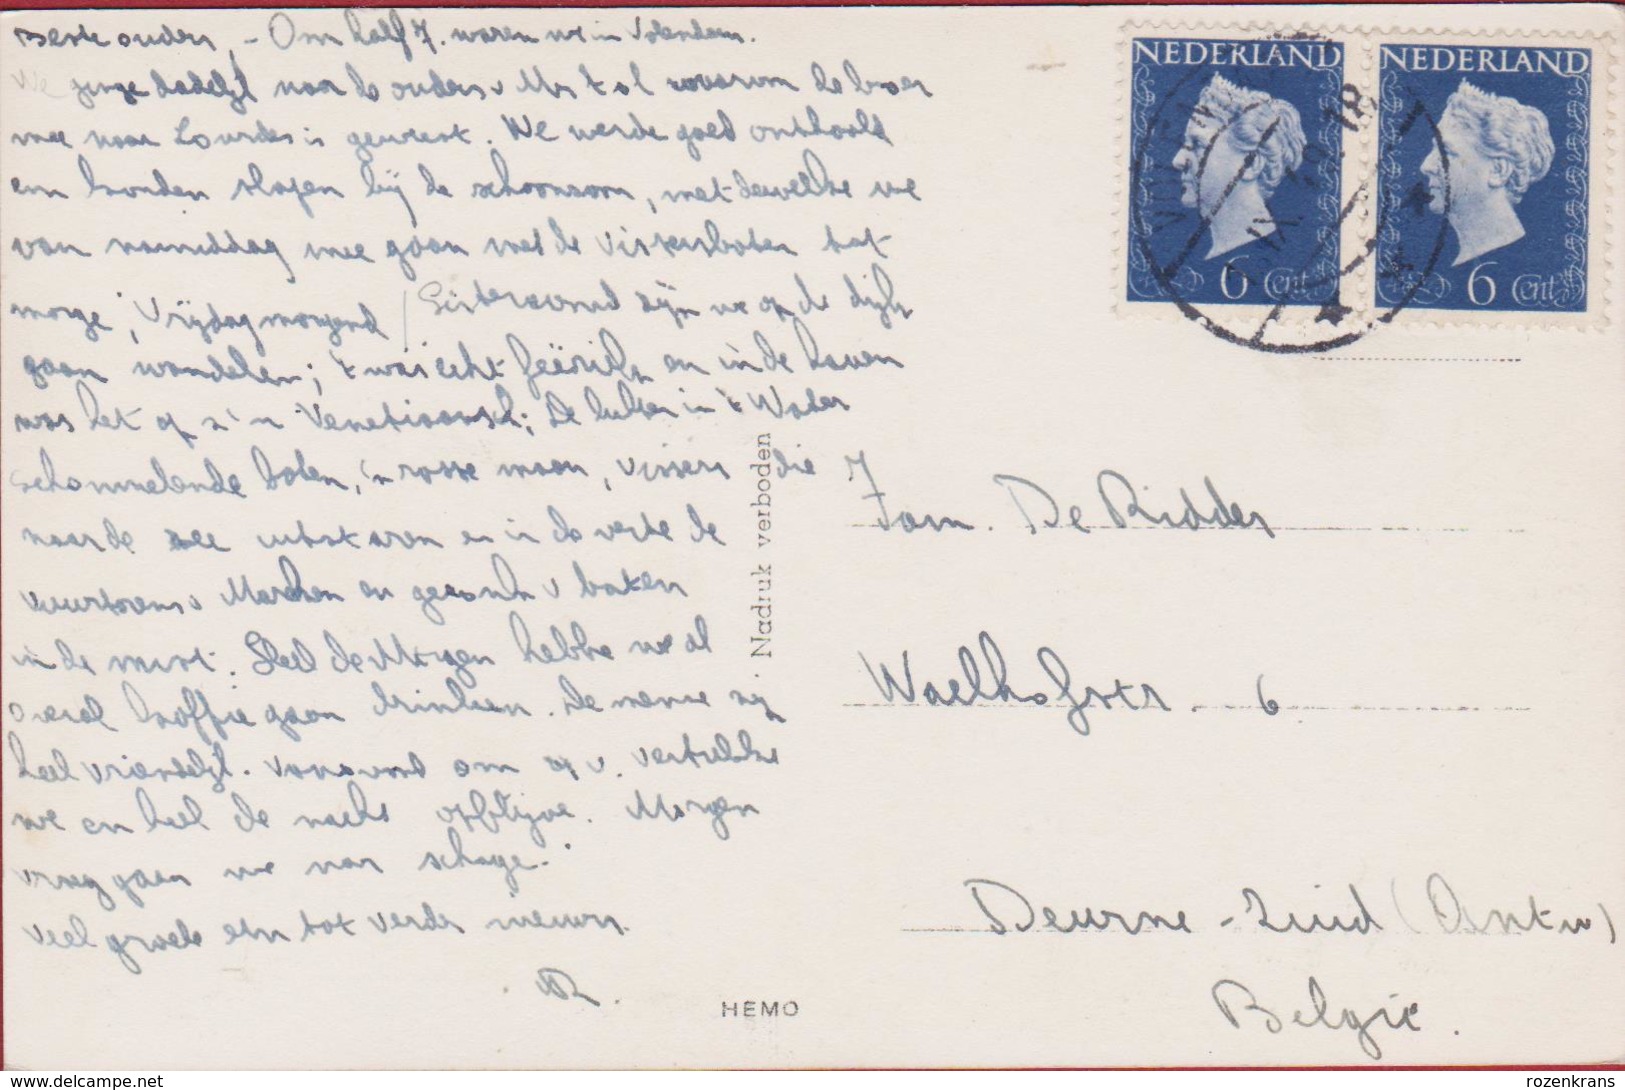 Beste ouders, - Om half 7. waren we in Volendam.
We dadelijk naar de ouders v waarvan de broer
mee naar Lourdes is geweest. We werde goed onthaald
en konden slapen bij de schoonzoon, met dewelke we
van namiddag mee gaan met de vissersboten tot
morge, Vrijdagmorgend / Gisteravond zijn we op de dijk
gaan wandelen; 't was echt feëeriek en in de haven
was het op z'n Venetiaansch; De lichten in 't Water
schommelende boten, 'n rosse maan, vissers die
naar de zee uitstaren en in de verte de
vuurtoren v Marken en v boten
in de mist. Heel de Morgen hebbe we al
overal koffie gaan drinken. De mense zijn
heel vriendelijk. Vanavond om u. vertrekke
we en heel de nacht opblijve. Morgen
vroeg gaan we naar schage.
Veel groete en tot verder nieuws.
R.
HEMO
Nadruk verboden
NEDERLAND
6 Cent
NEDERLAND
6 Cent
Fam. De Ridder
Waelhofstr. 6
Deurne - Zuid (Antw)
België.
delcampe.net
rozenkrans